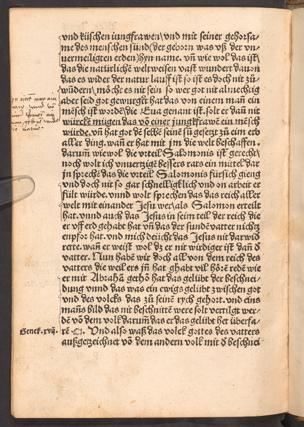 vnd küschen iungfrawen/ vnd mit seiner gehorsa/
me des menschen sünd (der geborn was vß der vn/
vermeiligten erden) hyn name. vñ wie wol das ist/
das die natürlichē weltweisen vast wundert dauon
das es wider der natur lauff ist so ist es doch nit zů
wüdern/ möcht es nit sein so wer got nit almechtig
aber seid got gewurckt hat das von einem man ein
mēsch ist wordē (die Eua genant ist. solt er dañ nit
würckē mügen das vō einer jungkfrawē ein mēsch
würde. vñ hat got dē selbē seinē sū gesetzt zů ein erb
aller ding. wañ er hat mit jm die welt beschaffen.
darum wiewol die vrteil Salomonis ist gerecht/
noch wolt ich vnuerzigt bessers rats ein mittel dar
jn sprechē das die vrteil Salomonis fürsich gieng
vnd doch nit so gar schnelligklich vnd on arbeit er
fült würde. vnnd wolt sprechen das das reich aller
welt mit einander Jesu wer/ als Salomon erteilt
hat. vnnd auch das Jesus in seim teil der reich die
er vff erd gehabt hat vō das der sunde vatter nichtz
empfor hat. vnd mich deücht das Jesus nit darwid
rette. wañ er weißt wol dz er nit wirdiger ist dañ d̄
vatter. Nun habē wir doch all von dem reich des
vatters die weil ers jn hat ghabt vil hörē redē wie
er mit Abrahā gerhō hat das gelübt der beschnei/
dung vnnd das was ein ewigs gelübt zwischen got
vnd des volcks das zů seinē rych gehort. vnd eins
mañs bild das nit beschnittē were solt vertilgt wer/
dē vō dem volck darum das er das gelübt het überfa/
Genes. xvij. rē ⁊c. Vnd also waß das volck gottes des vatters
außgezeichnet vō dem andern volck mit d̄ beschnei